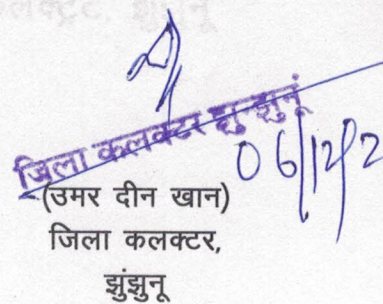 जिला कलक्टर झुन्झुनूं
06/12/2
(उमर दीन खान)
जिला कलक्टर,
झुंझुनू